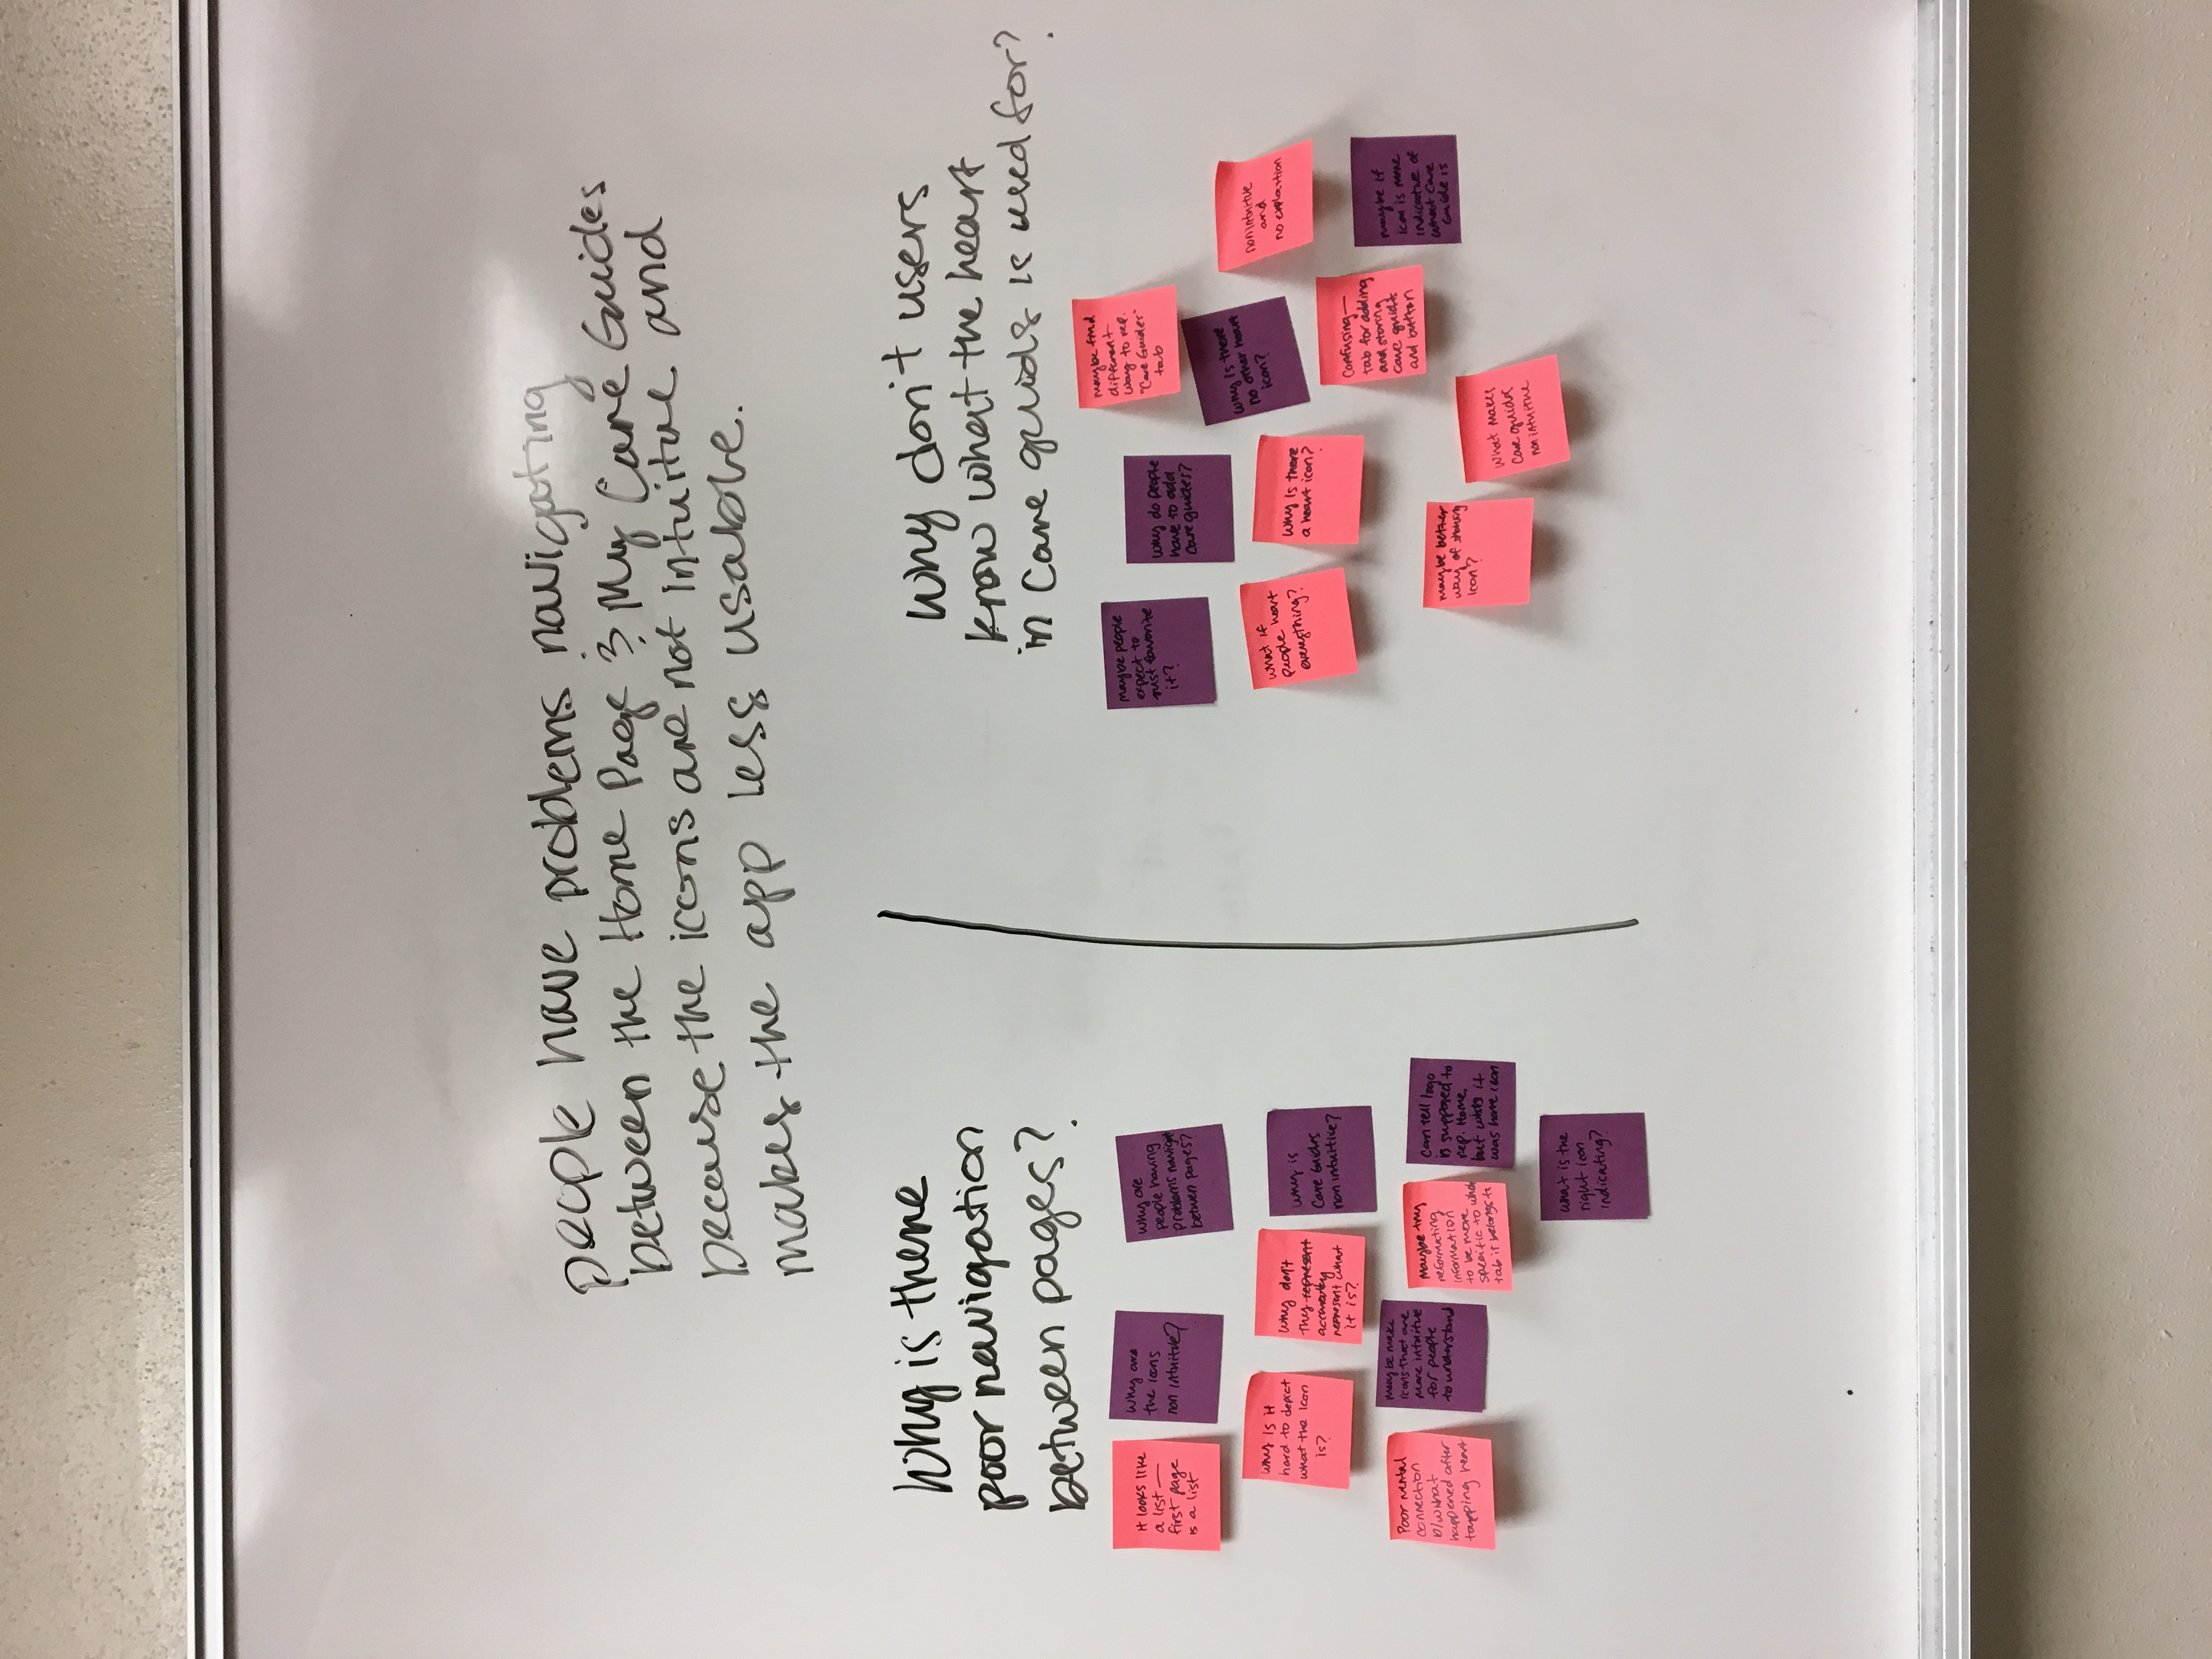 people have problems navigating
between the Home Page & My Care Guides
because the icons are not intuitive and
makes the app less usable.
Why is there
poor navigation
between pages?
It looks like
a list —
first page
is a list
Why are
the icons
non intuitive?
Why are
people having
problems navigat
between pages?
Why is it
hard to depict
what the icon
is?
Why don't
they represent
accurately
represent what
it is?
Why is
Care Guides
non intuitive?
Poor mental
connection
b/w what
happened after
tapping heart
Maybe make
icons that are
more intuitive
for people
to understand
Maybe try
reformating
information
to be more
specific to which
tab it belongs to
Can tell logo
is supposed to
rep. Home,
but wish it
was home icon
What is the
right icon
indicating?
Why don't users
know what the heart
in Care guids is used for?
maybe people
expect to
just favorite
it?
Why do people
have to add
Care guides?
Maybe find
different
way to rep.
"Care Guides"
tab
What if
people heart
everything?
Why is there
a heart icon?
Why is there
no other heart
icon?
nonintuitive
and
no explaition
Confusing—
tab for adding
and storing
care guides
and button
maybe if
icon is more
indicative of
what Care
Guide is
maybe better
way of showing
icon?
What makes
Care guides
non intuitive